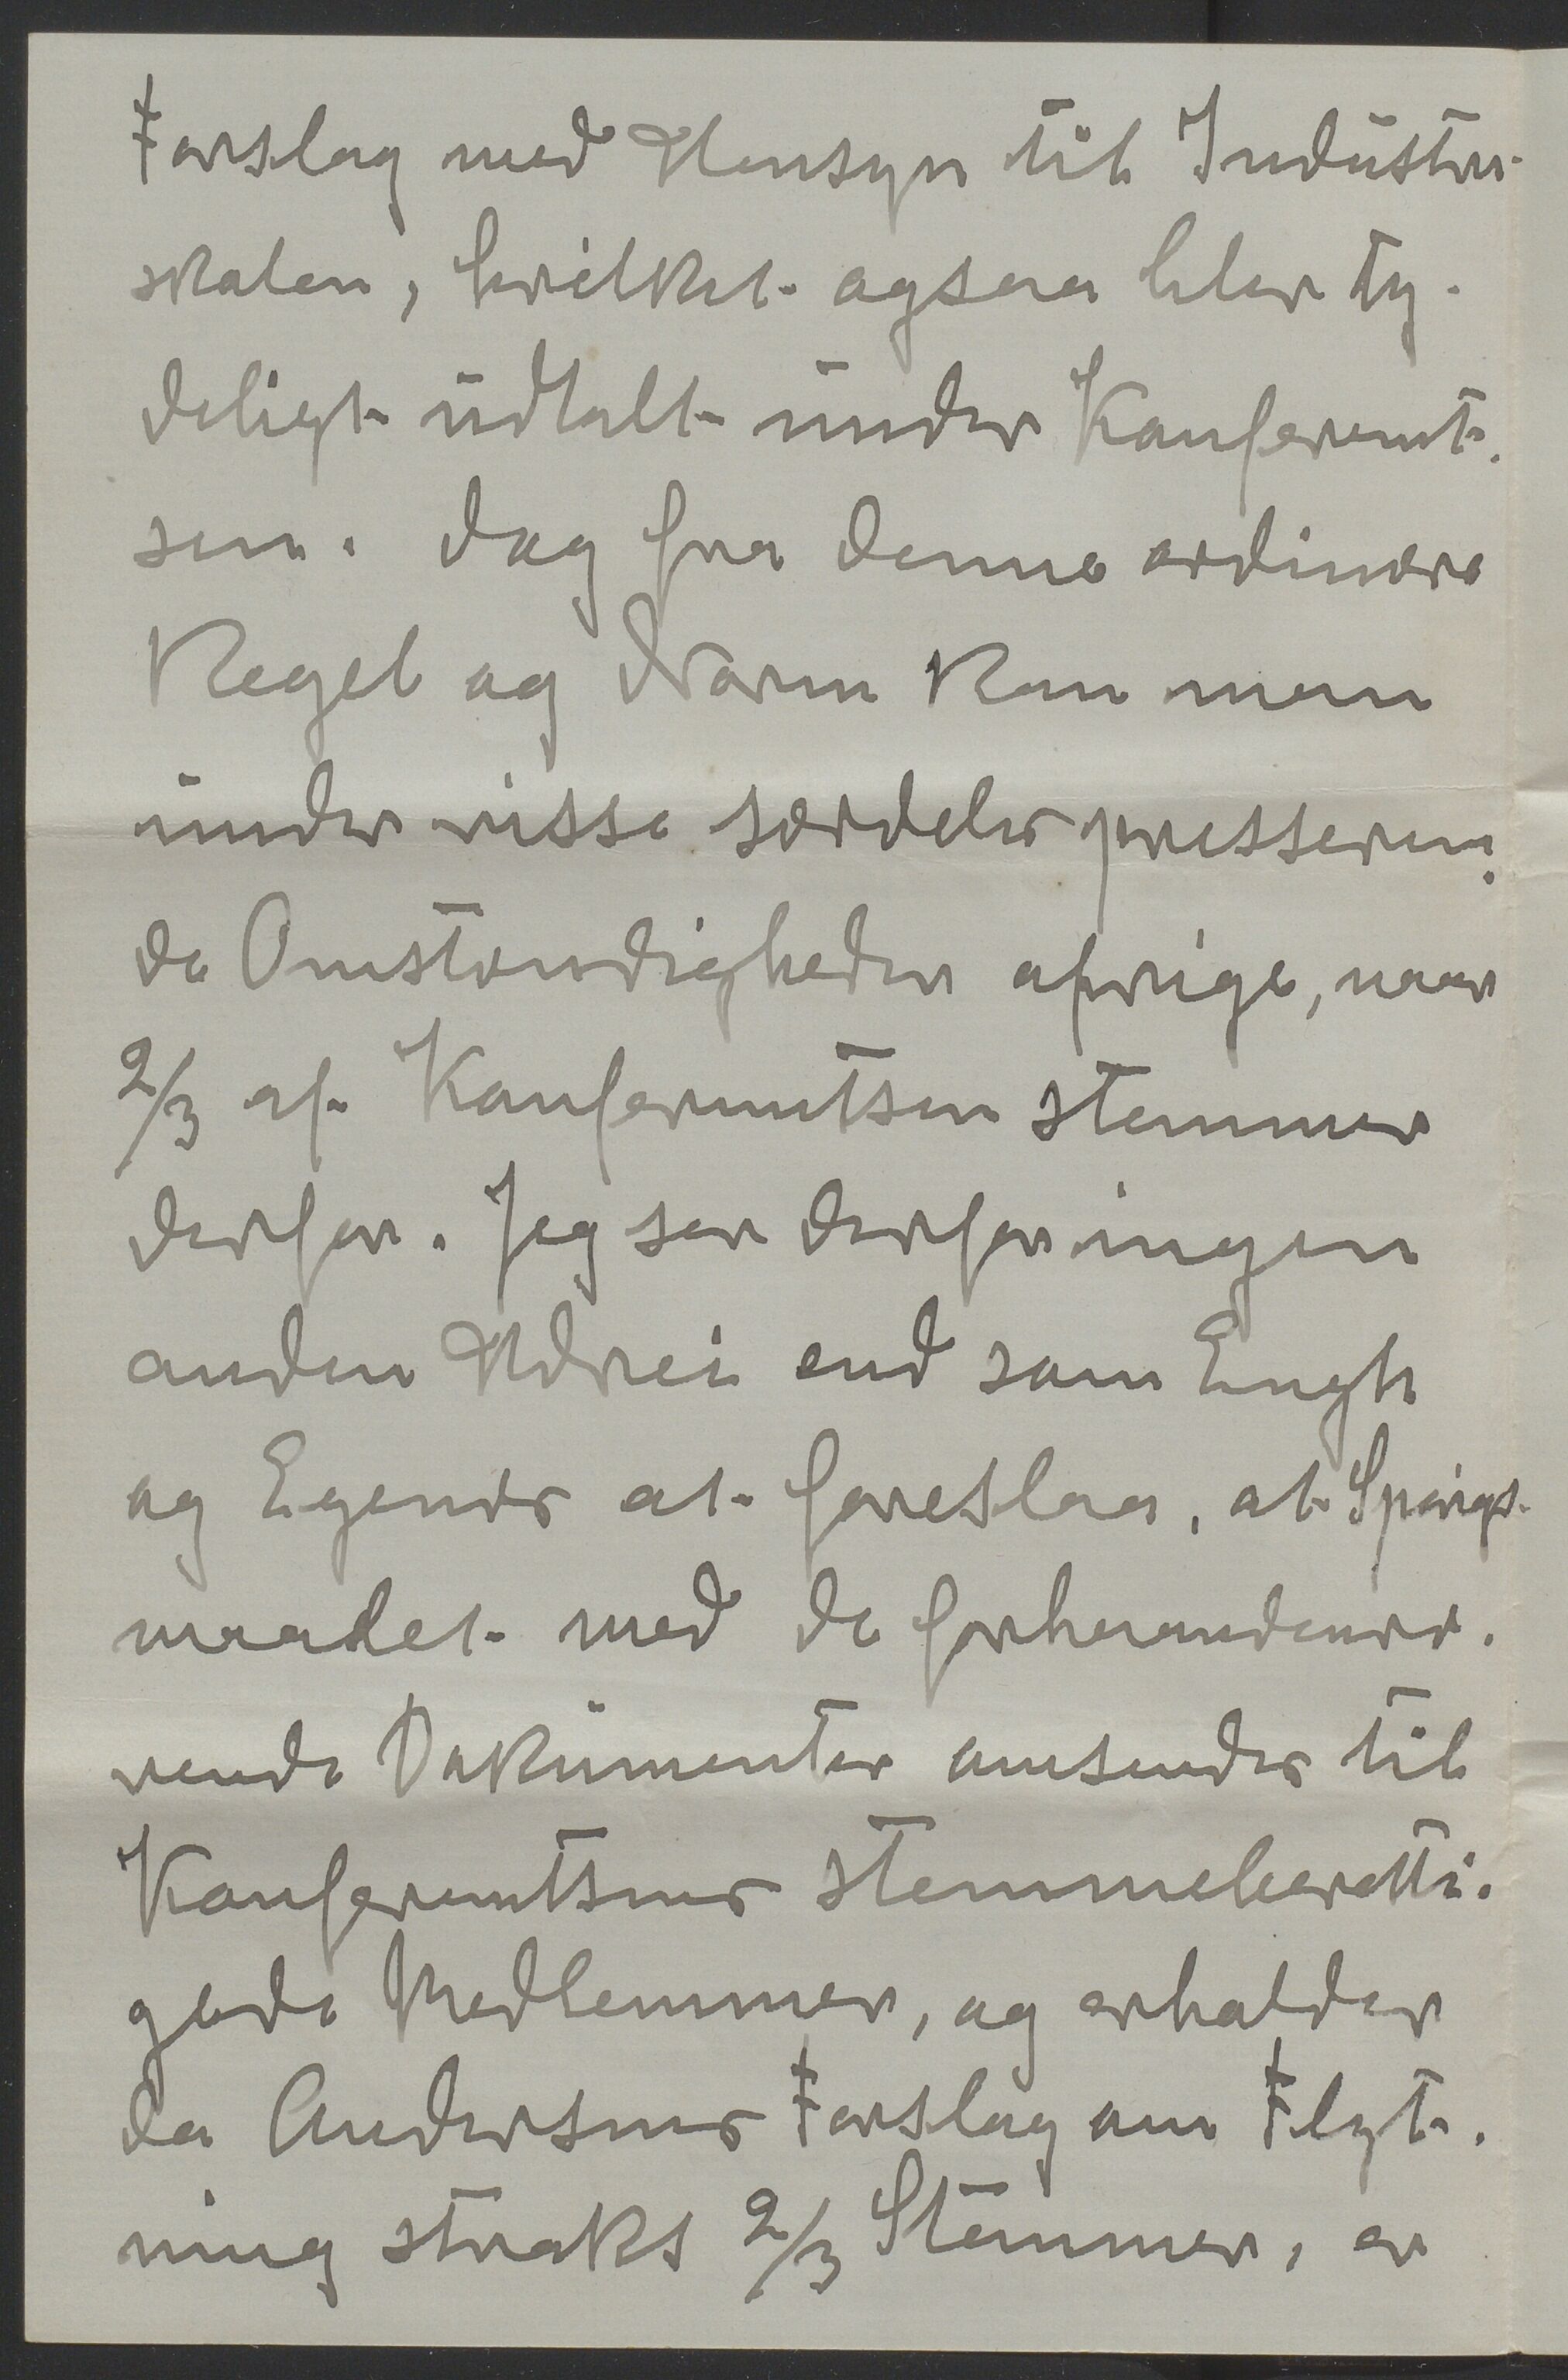 Forslag med Hensyn til Industri-
skolen, hvilket ogsaa blev ty-
deligt udtalt under Konferent-
sen. Dog fra denne ordinære
Regel og Norm kan man
under visse særdeles presseren-
de Omstændigheder afvige, naar
2/3 af Konferentsen stemmer
derfor. Jeg ser derfor ingen
anden Udvei end som Engh
og Egenes at foreslaa, at Spørgs-
maalet med de forhaandenvæ-
rende Dokumenter omsendes til
Konferentsens stemmeberetti-
gede Medlemmer, og erholder
da Andersens Forslag om Flyt-
ning straks 2/3 Stemmer, er